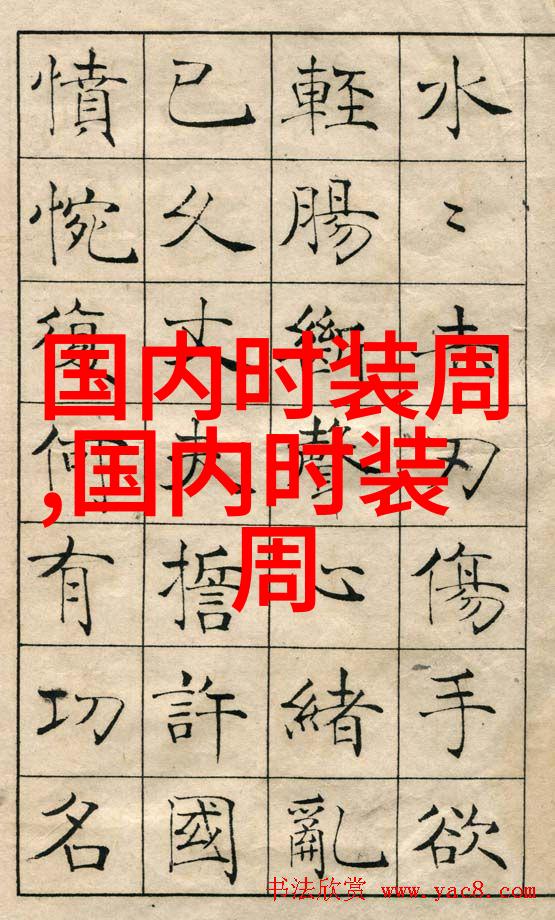 国内时装周
,国内时装
周
水〻刃傷手欲
輕腸聲心緒亂
已久丈夫許國
憤惋復何有功名
书法欣赏 www.yac8.com